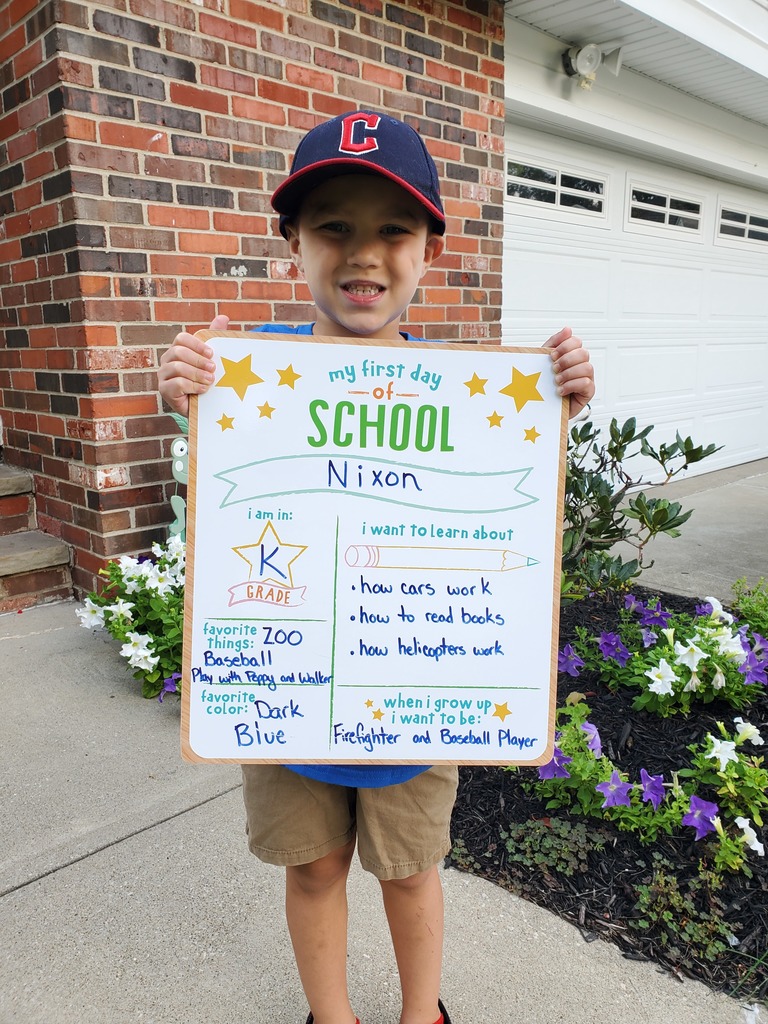 C
my first day
of
SCHOOL
Nixon
i am in:
K
GRADE
favorite things: ZOO
Baseball
Play with Peppy and Walker
favorite color: Dark
Blue
i want to learn about
• how cars work
• how to read books
• how helicopters work
when i grow up
i want to be:
Firefighter and Baseball Player